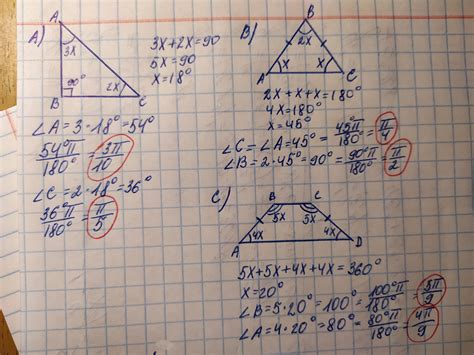 A)
A
3X
90°
2X
B
C
3X+2X=90
5X=90
X=18°
∠A=3·18°=54°
54°π/180° = 3π/10
∠C=2·18°=36°
36°π/180° = π/5
B)
B
2X
X
X
A
C
2X+X+X=180°
4X=180°
X=45°
∠C=∠A=45°= 45π/180° = π/4
∠B=2·45°=90°= 90°π/180° = π/2
C)
B
C
5X
5X
4X
4X
A
D
5X+5X+4X+4X=360°
X=20°
∠B=5·20°=100°= 100°π/180° = 5π/9
∠A=4·20°=80°= 80°π/180° = 4π/9